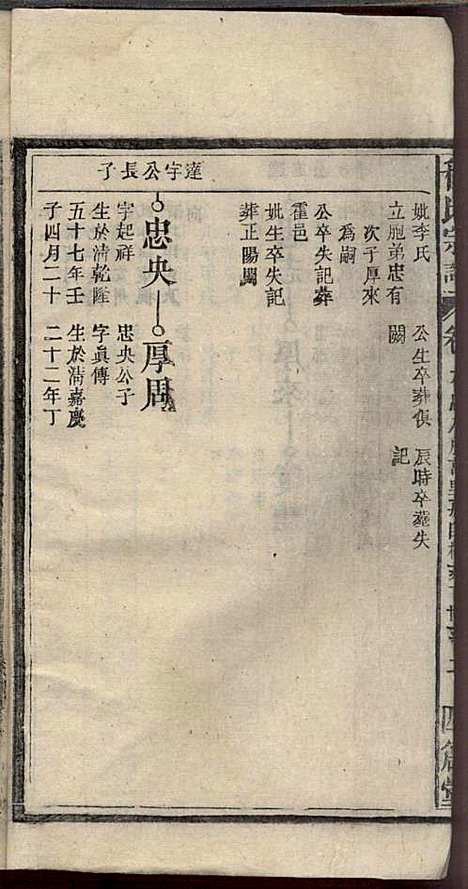 妣李氏　公生卒葬俱　辰時卒葬失
立胞弟忠有　闕　記
次子厚來
為嗣
公卒失記葬
霍邑
妣生卒失記
葬正陽關
達宇公長子
忠央　厚周
字起祥　忠央公子
生於清乾隆　字真傳
五十七年壬　生於清嘉慶
子四月二十　二十二年丁
氏宗譜